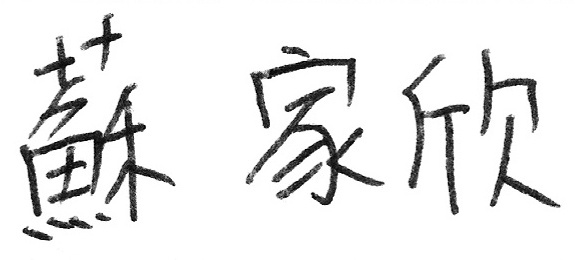 蘇家欣